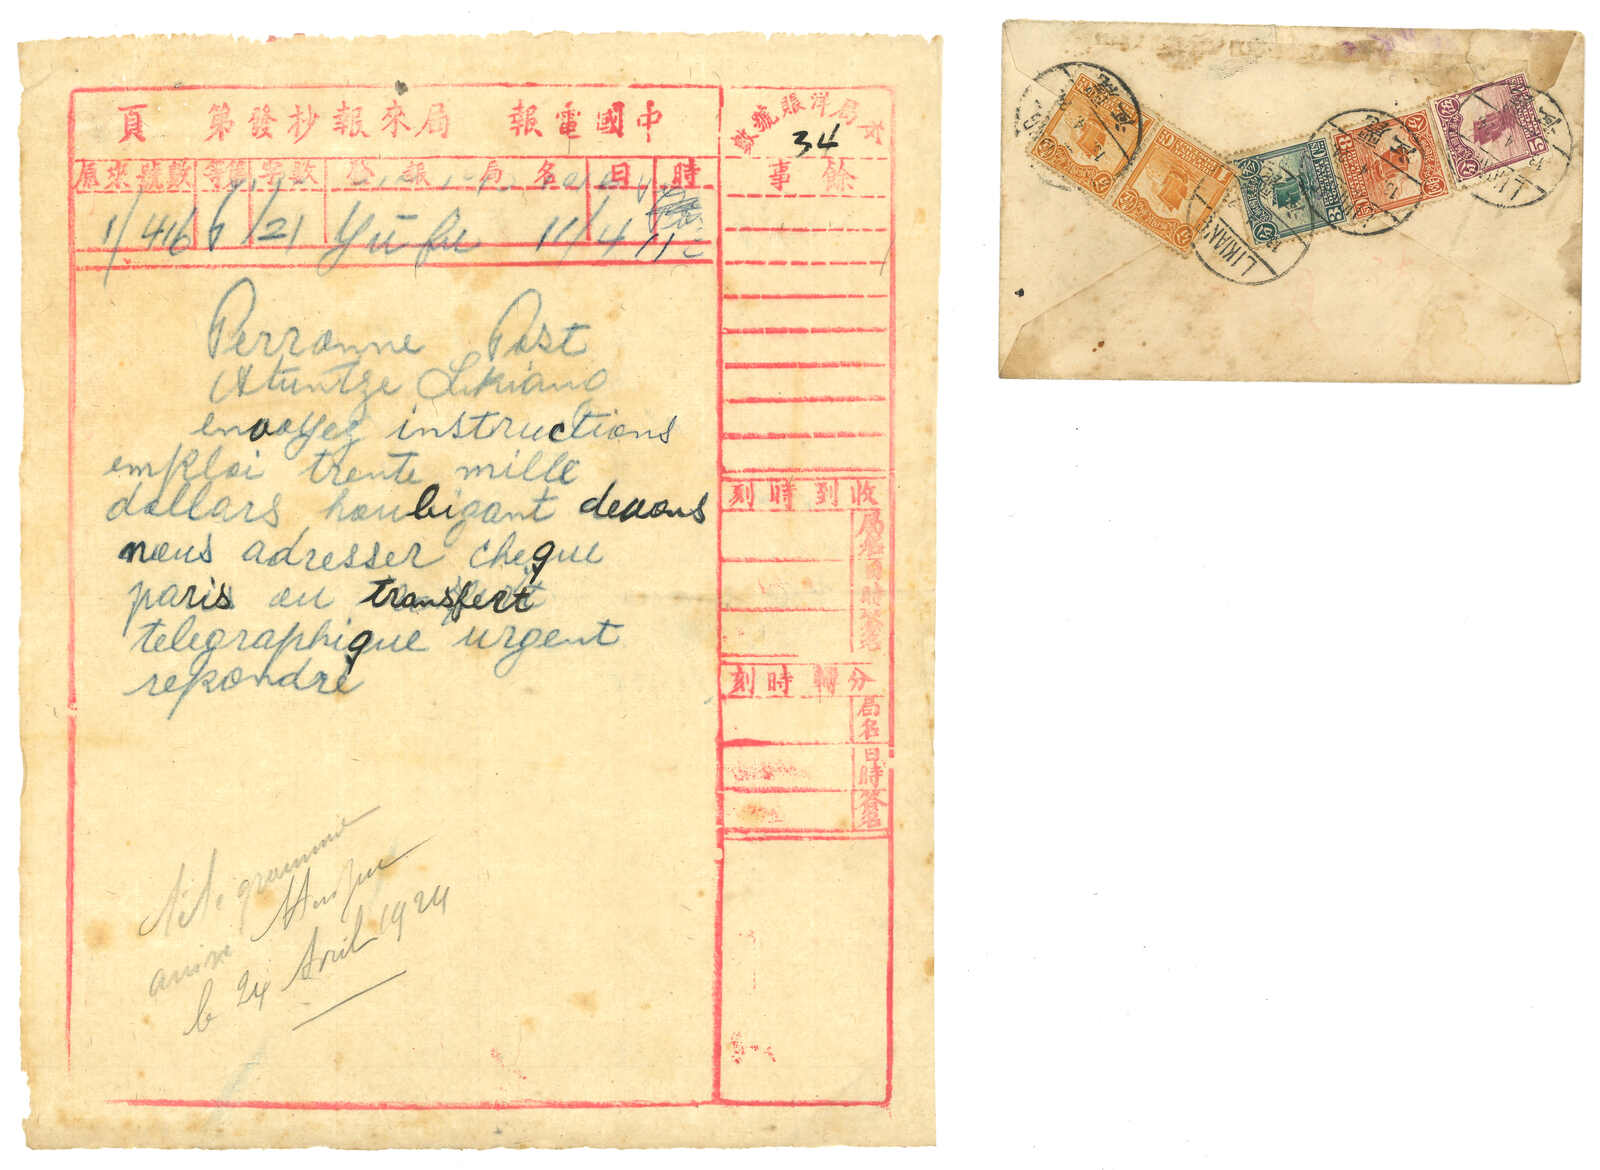 中國電報局來報抄發第 頁
原來號數 等第 字數 發報局名 日 時
1/416 6/121 Yü fu 11/4 11
局洋賬號數
34
餘事
Perronne Post
Atuntze Likiang
envoyez instructions
emploi trente mille
dollars houbigant devons
nous adresser cheque
paris ou transfert
telegraphique urgent
repondre
收到時刻
局名
日時
簽名
分轉時刻
局名
日時
簽名
Télégramme
arrivé
le 24 Avril 1924
LIKIANG
LIKIANG
LIKIANG